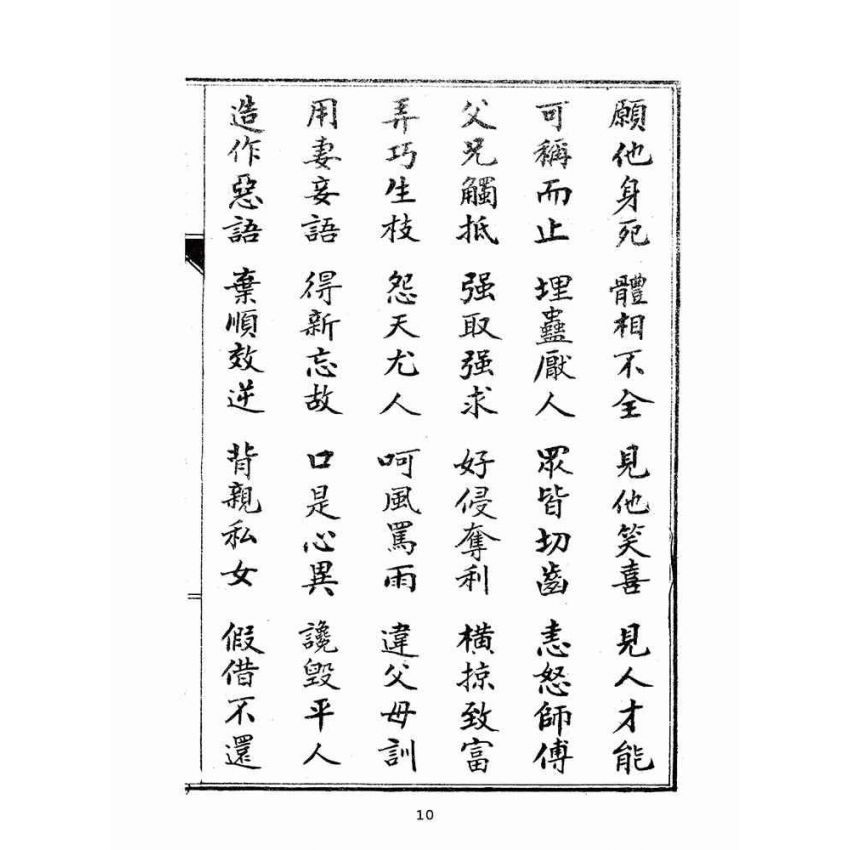 願他身死 體相不全 見他笑喜 見人才能
可稱而止 埋蠱厭人 眾皆切齒 恚怒師傅
父兄觸抵 强取强求 好侵奪利 橫掠致富
弄巧生枝 怨天尤人 呵風罵雨 違父母訓
用妻妾語 得新忘故 口是心異 讒毀平人
造作惡語 棄順效逆 背親私女 假借不還
10